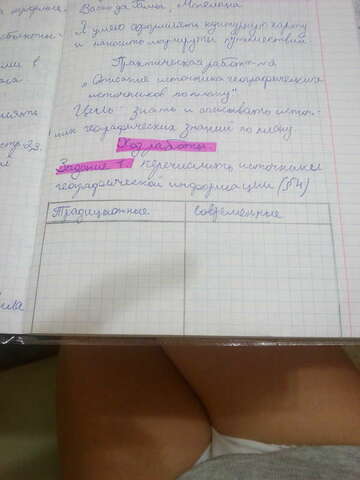 Васко да Гамы, Магеллана
Я умею оформлять контурную карту
и наносить маршруты путешествий
Практическая работа
"Описание источника географических
источников по плану"
Цель: знать и описывать источ-
ник географических знаний по плану
Ход работы
Задание 1. перечислить источники
географической информации (§4)
Традиционные
современные
стр